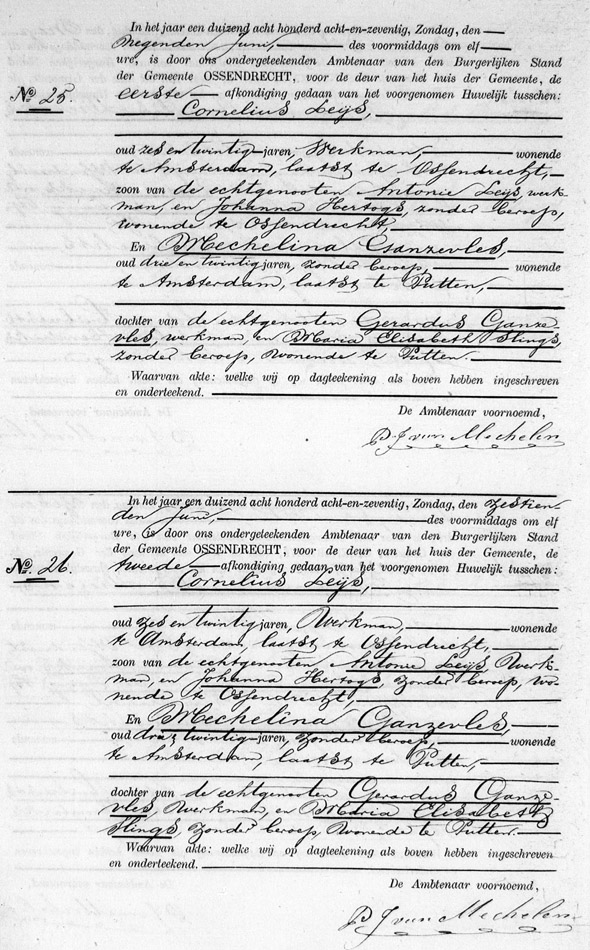 In het jaar een duizend acht honderd acht-en-zeventig, Zondag, den
Negenden Juni, des voormiddags om elf
ure, is door ons ondergeteekenden Ambtenaar van den Burgerlijken Stand
der Gemeente OSSENDRECHT, voor de deur van het huis der Gemeente, de
No. 25. eerste afkondiging gedaan van het voorgenomen Huwelijk tusschen:
Cornelius Leijs,
oud zes en twintig jaren, Werkman, wonende
te Amsterdam, laatst te Ossendrecht,
zoon van de echtgenooten Antonie Leijs, werk-
man, en Johanna Hertogs, zonder beroep,
wonende te Ossendrecht,
En Mechelina Ganzevles,
oud drie en twintig jaren, zonder beroep, wonende
te Amsterdam, laatst te Putten,
dochter van de echtgenooten Gerardus Ganze-
vles, werkman, en Maria Elisabeth Slings,
zonder beroep, wonende te Putten.
Waarvan akte: welke wij op dagteekening als boven hebben ingeschreven
en onderteekend.
De Ambtenaar voornoemd,
P. J. van Mechelen
In het jaar een duizend acht honderd acht-en-zeventig, Zondag, den zestien-
den Juni, des voormiddags om elf
ure, is door ons ondergeteekenden Ambtenaar van den Burgerlijken Stand
der Gemeente OSSENDRECHT, voor de deur van het huis der Gemeente, de
No. 26. tweede afkondiging gedaan van het voorgenomen Huwelijk tusschen:
Cornelius Leijs,
oud zes en twintig jaren, Werkman, wonende
te Amsterdam, laatst te Ossendrecht,
zoon van de echtgenooten Antonie Leijs, Werk-
man, en Johanna Hertogs, zonder beroep, wo-
nende te Ossendrecht,
En Mechelina Ganzevles,
oud drie twintig jaren, zonder beroep, wonende
te Amsterdam, laatst te Putten,
dochter van de echtgenooten Gerardus Ganze-
vles, Werkman, en Maria Elisabeth
Slings, zonder beroep, wonende te Putten.
Waarvan akte: welke wij op dagteekening als boven hebben ingeschreven
en onderteekend.
De Ambtenaar voornoemd,
P. J. van Mechelen